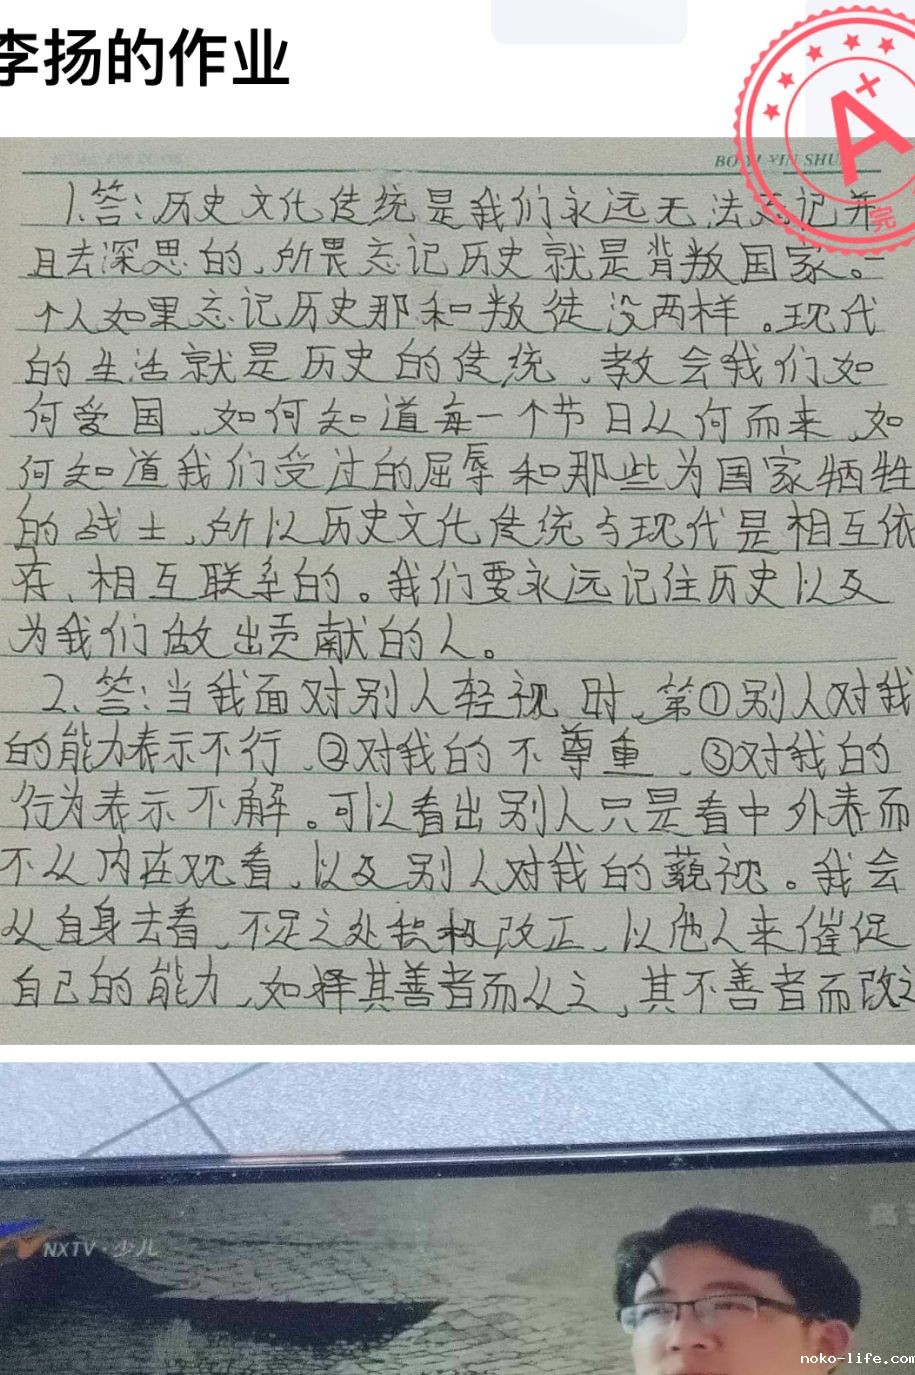 李扬的作业
BO YI YIN SHU
A+
完
1.答:历史文化传统是我们永远无法忘记并
且去深思的、所畏忘记历史就是背叛国家。一
个人如果忘记历史那和叛徒没两样。现代
的生活就是历史的传统、教会我们如
何爱国、如何知道每一个节日从何而来、如
何知道我们受过的屈辱和那些为国家牺牲
的战士、所以历史文化传统与现代是相互依
存、相互联系的。我们要永远记住历史以及
为我们做出贡献的人。
2.答:当我面对别人轻视时、第①别人对我
的能力表示不行、②对我的不尊重、③对我的
行为表示不解。可以看出别人只是看中外表而
不从内在观看、以及别人对我的藐视。我会
从自身去看、不足之处积极改正、以他人来催促
自己的能力、如择其善者而从之、其不善者而改之
NXTV·少儿
noko-life.com